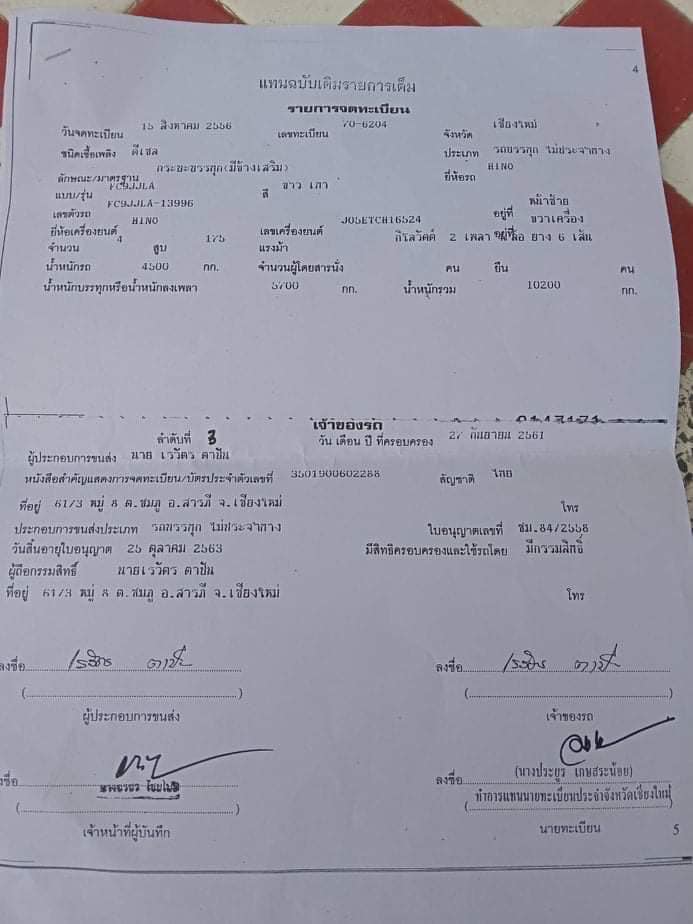 4
แทนฉบับเดิมรายการเต็ม
รายการจดทะเบียน
วันจดทะเบียน 15 สิงหาคม 2556 เลขทะเบียน 70-6204 จังหวัด เชียงใหม่
ชนิดเชื้อเพลิง ดีเซล ประเภท รถบรรทุก ไม่ประจำทาง
ลักษณะ/มาตรฐาน กระบะบรรทุก(มีข้างเสริม) ยี่ห้อรถ HINO
แบบ/รุ่น FC9JJLA สี ขาว เทา
เลขตัวรถ FC9JJLA-13996 อยู่ที่ หน้าซ้าย
ยี่ห้อเครื่องยนต์ HINO เลขเครื่องยนต์ J05ETCH16524 อยู่ที่ ขวาเครื่อง
จำนวน 4 สูบ 175 แรงม้า กิโลวัตต์ 2 เพลา ล้อ ยาง 6 เส้น
น้ำหนักรถ 4500 กก. จำนวนผู้โดยสารนั่ง คน ยืน คน
น้ำหนักบรรทุกหรือน้ำหนักลงเพลา 5700 กก. น้ำหนักรวม 10200 กก.
เจ้าของรถ
ลำดับที่ 3 วัน เดือน ปี ที่ครอบครอง 27 กันยายน 2561
ผู้ประกอบการขนส่ง นาย เรวัตร ตาปัน
หนังสือสำคัญแสดงการจดทะเบียน/บัตรประจำตัวเลขที่ 3501900602288 สัญชาติ ไทย
ที่อยู่ 61/3 หมู่ 8 ต.ชมภู อ.สารภี จ.เชียงใหม่ โทร
ประกอบการขนส่งประเภท รถบรรทุก ไม่ประจำทาง ใบอนุญาตเลขที่ ชม.84/2558
วันสิ้นอายุใบอนุญาต 25 ตุลาคม 2563 มีสิทธิครอบครองและใช้รถโดย มีกรรมสิทธิ์
ผู้ถือกรรมสิทธิ์ นายเรวัตร ตาปัน
ที่อยู่ 61/3 หมู่ 8 ต.ชมภู อ.สารภี จ.เชียงใหม่ โทร
ลงชื่อ เรวัตร ตาปัน ลงชื่อ เรวัตร ตาปัน
ผู้ประกอบการขนส่ง เจ้าของรถ
ลงชื่อ ลงชื่อ (นางประยูร เกษสระน้อย)
ทำการแทนนายทะเบียนประจำจังหวัดเชียงใหม่
เจ้าหน้าที่ผู้บันทึก นายทะเบียน
5